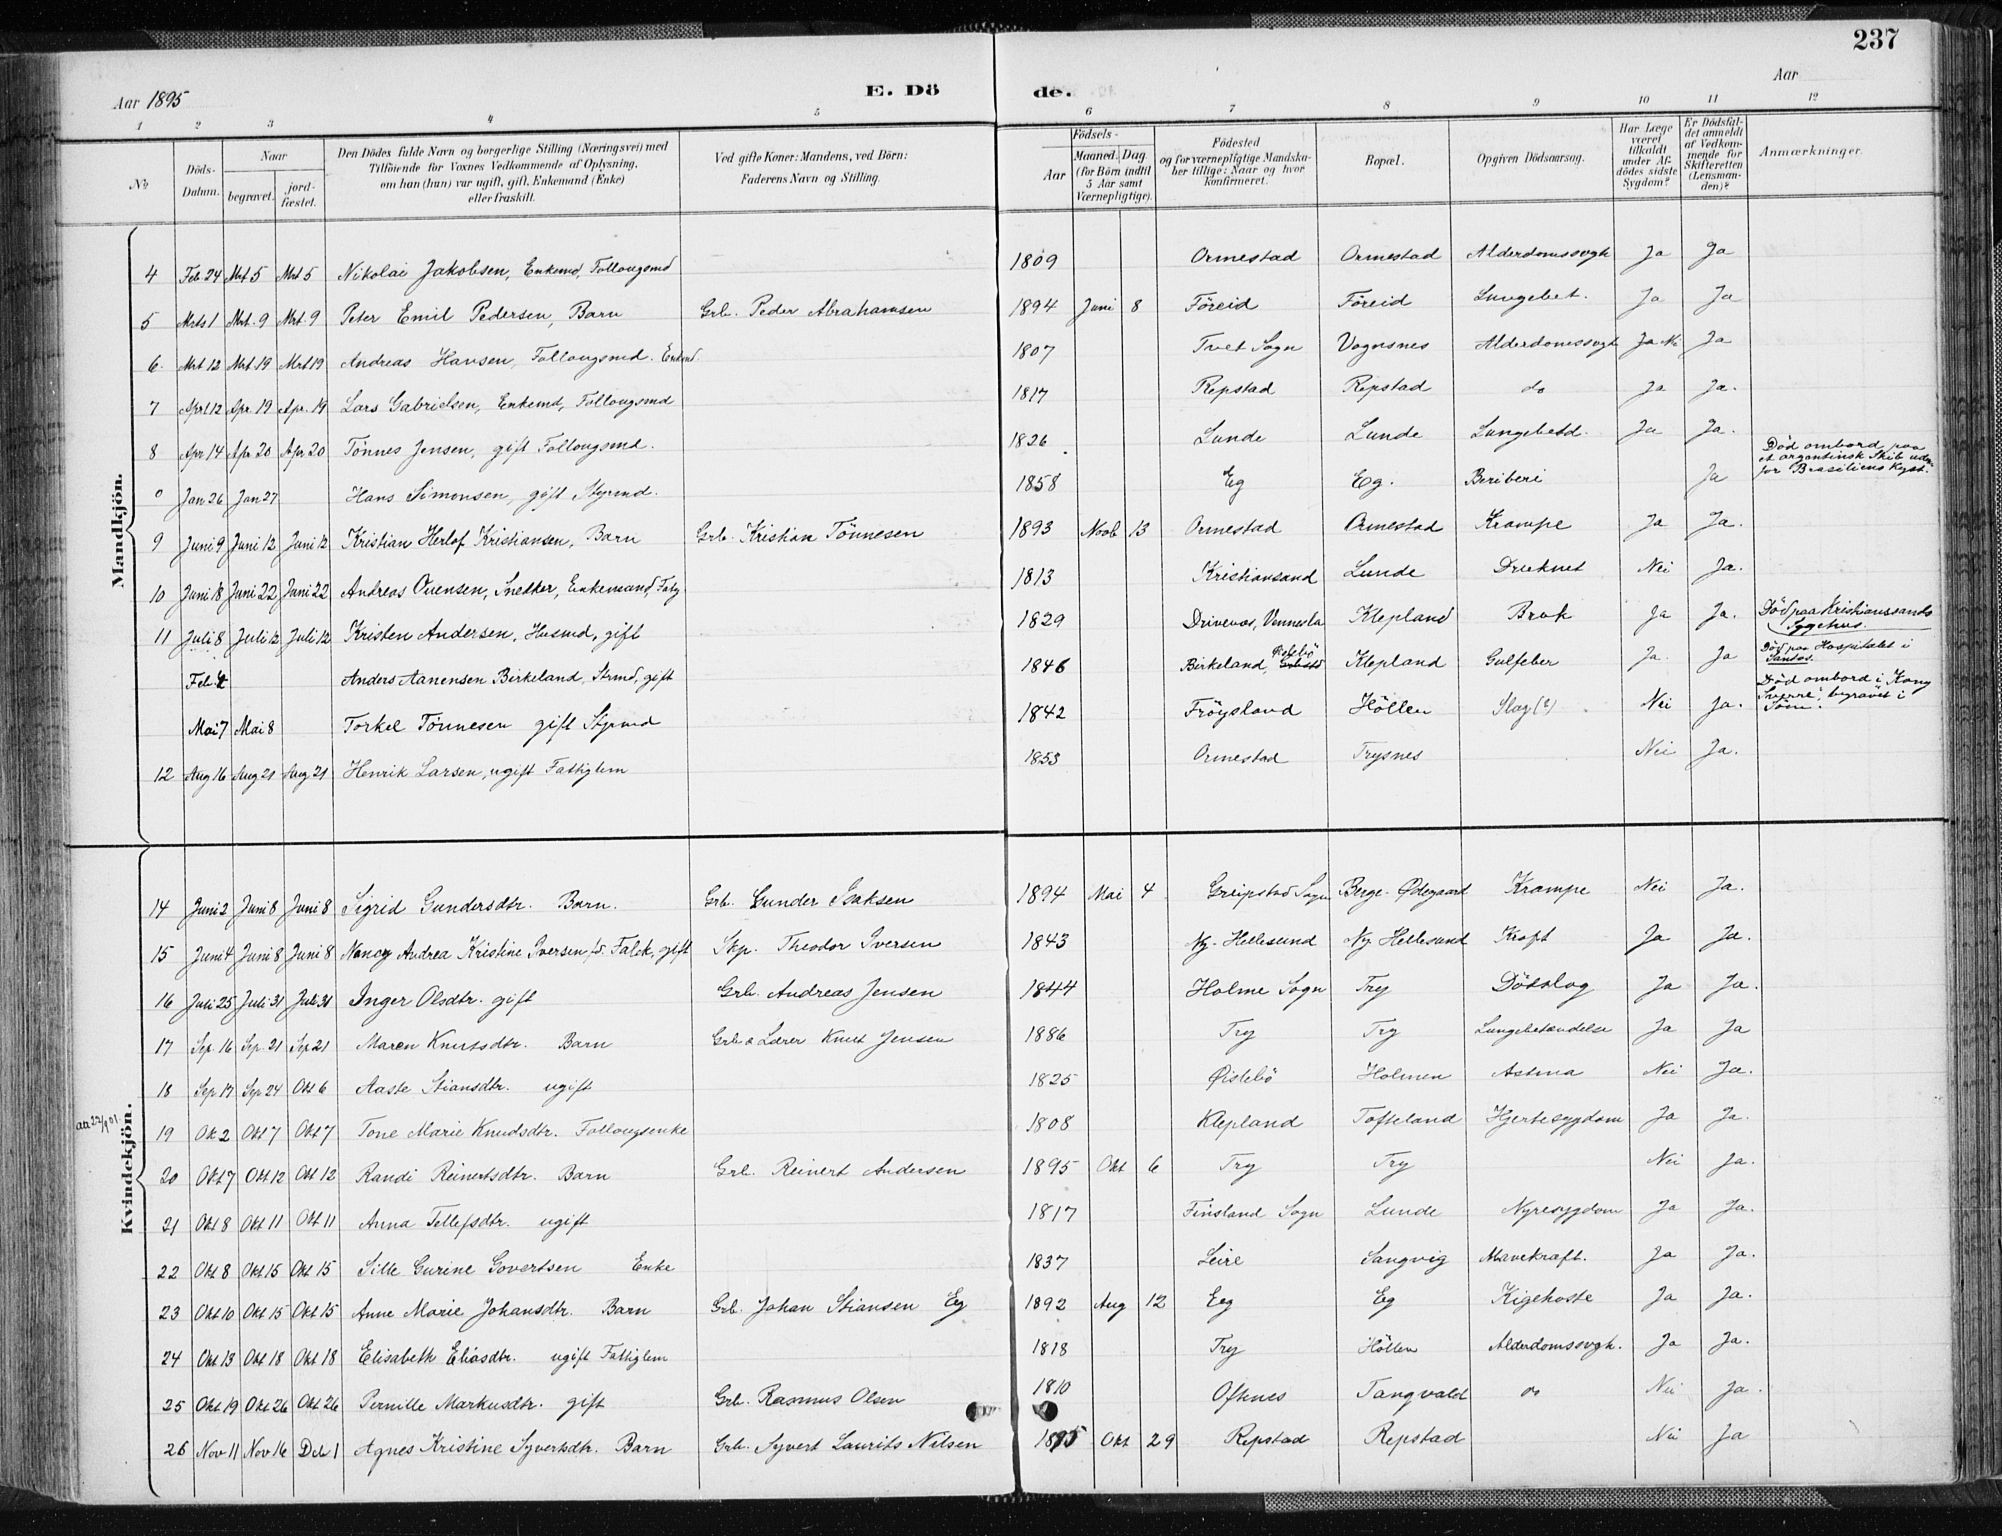 237
Aar 1895 E. Dö de. Aar
1 2 3 4 5 6 7 8 9 10 11 12
No
Döds-Datum.
Naar
begravet.
jord-fæstet.
Den Dödes fulde Navn og borgerlige Stilling (Næringsvei) med
Tilföiende for Voxnes Vedkommende af Oplysning,
om han (hun) var ugift, gift, Enkemand (Enke)
eller fraskilt.
Ved gifte Koner: Mandens, ved Börn:
Faderens Navn og Stilling.
Födsels-
Aar
Maaned. Dag
(for Börn indtil
5 Aar samt
Værnepligtige).
Födested
og for værnepligtige Mandska-
ber tillige: Naar og hvor
konfirmeret.
Bopæl.
Opgiven Dödsaarsag.
Har Læge
været
tilkaldt
under Af-
dödes sidste
Sygdom?
Er Dödsfal-
det anmeldt
af Vedkom-
mende for
Skifteretten
(Lensman-
den)?
Anmærkninger.
Mandkjön.
4 Feb 24 Mrt 5 Mrt 5 Nikolai Jakobsen, Enkemd, Follougsmd 1809 Ormestad Ormestad Alderdomssvgh Ja Ja
5 Mrts 1 Mrt. 9 Mrt. 9 Peter Emil Pedersen, Barn Grb. Peder Abrahamsen 1894 Juni 8 Föreid Föreid Lungebet. Ja Ja
6. Mrt 12 Mrt 19 Mrt 19 Andreas Hansen, Follougsmd. Enkmd. 1807 Tvet Sogn Vognsnes Alderdomssvgh Ja Nei Ja
7 Aprl 12 Apr. 19 Apr. 19 Lars Gabrielsen, Enkemd, Follougsmd 1817 Repstad Repstad do Ja Ja.
8 Apr 14 Apr 20 Apr 20 Tönnes Jensen, gift Follougsmd. 1826 Lunde Lunde Lungebetd. Ja Ja.
0 Jan 26 Jan 27 Hans Simonsen, gift Styrmd. 1858 Eg Eg. Beriberi Ja Död ombord paa
et argentinsk Skib uden-
for Brasiliens Kyst.
9 Juni 9 Juni 12 Juni 12 Kristian Herlof Kristiansen, Barn Grb. Kristian Tönnesen 1893 Novb 13 Ormestad Ormestad Krampe Ja Ja.
10 Juni 18 Juni 22 Juni 22 Andreas Ouensen, Snedker, Enkemand, Fatg. 1813 Kristiansand Lunde Druknet Nei Ja.
11 Juli 8 Juli 12 Juli 12 Kristen Andersen, Husmd, gift 1829 Drivenæs, Vennesla Klepland Brok Ja Ja. Död paa Kristianssands
Sygehus.
Feb. 4 Anders Aanensen Birkeland, Strmd, gift 1846 Birkeland, Öislebö Klepland Gulfeber Ja. Ja Död paa Hospitalet i
Santos.
Mai 7 Mai 8 Torkel Tönnesen gift Styrmd 1842 Fröysland Höllen Slag (?) Nei Ja. Död ombord i Kong
Sverre. begravet i
Söm.
12 Aug 16 Aug 21 Aug 21 Henrik Larsen, ugift Fattiglem 1853 Ormestad Trysnes Nei Ja.
Kvindekjön.
14 Juni 2 Juni 8 Juni 8 Sigrid Gundersdtr. Barn. Grb. Gunder Isaksen 1894 Mai 4 Greipstad Sogn Berge-Ödegaard Krampe Nei Ja.
15 Juni 4 Juni 8 Juni 8 Nancy Andrea Kristine Iversen f.d. Falck, gift Skp. Theodor Iversen 1843 Ny-Hellesund Ny Hellesund Kræft Ja Ja.
16 Juli 25 Juli 31 Juli 31 Inger Olsdtr. gift Grb. Andreas Jensen 1844 Holme Sogn Try Dödslag Ja Ja.
17 Sep. 16 Sep. 21 Sep 21 Maren Knutsdtr. Barn Grb & Lærer Knut Jensen 1886 Try Try Lungebetændelse Ja Ja
18 Sep 17 Sep 24 Okt 6 Aaste Stiansdtr. ugift 1825 Øislebö Holmen Astma Nei Ja.
19 Ok 2 Okt 7 Okt 7 Tone Marie Knudsdtr. Follougsenke 1808 Klepland Tofteland Hjertesygdom Ja Ja.
20 Okt 7 Okt 12 Okt 12 Randi Reinertsdtr. Barn Grb. Reinert Andersen 1895 Okt 6 Try Try Nei Ja.
21 Okt 8 Okt 11 Okt 11 Anna Tellefsdtr. ugift 1817 Finsland Sogn Lunde Nyresygdom Ja Ja.
22 Okt 8 Okt 15 Okt 15 Sille Gurine Govertsen Enke 1837 Leire Sangvig Mavekræft. Ja Ja.
23 Okt 10 Okt 15 Okt 15 Anne Marie Johansdtr. Barn Grb. Johan Stiansen Eg 1892 Aug 12 Eg Eg Kighoste Ja Ja.
24 Okt 13 Okt 18 Okt 18 Elisabeth Eliasdtr. ugift Fattiglem 1818 Try Höllen Alderdomssvgh. Ja Ja.
25 Okt 19 Okt 26 Okt 26 Pernille Markusdtr. gift Grb. Rasmus Olsen 1810 Oftenes Tangvald do Nei Ja.
26 Nov 11 Nov 16 Deb 1 Agnes Kristine Syvertsdtr. Barn Grb. Syvert Laurits Nilsen 1895 Okt 29 Repstad Repstad Nei Ja